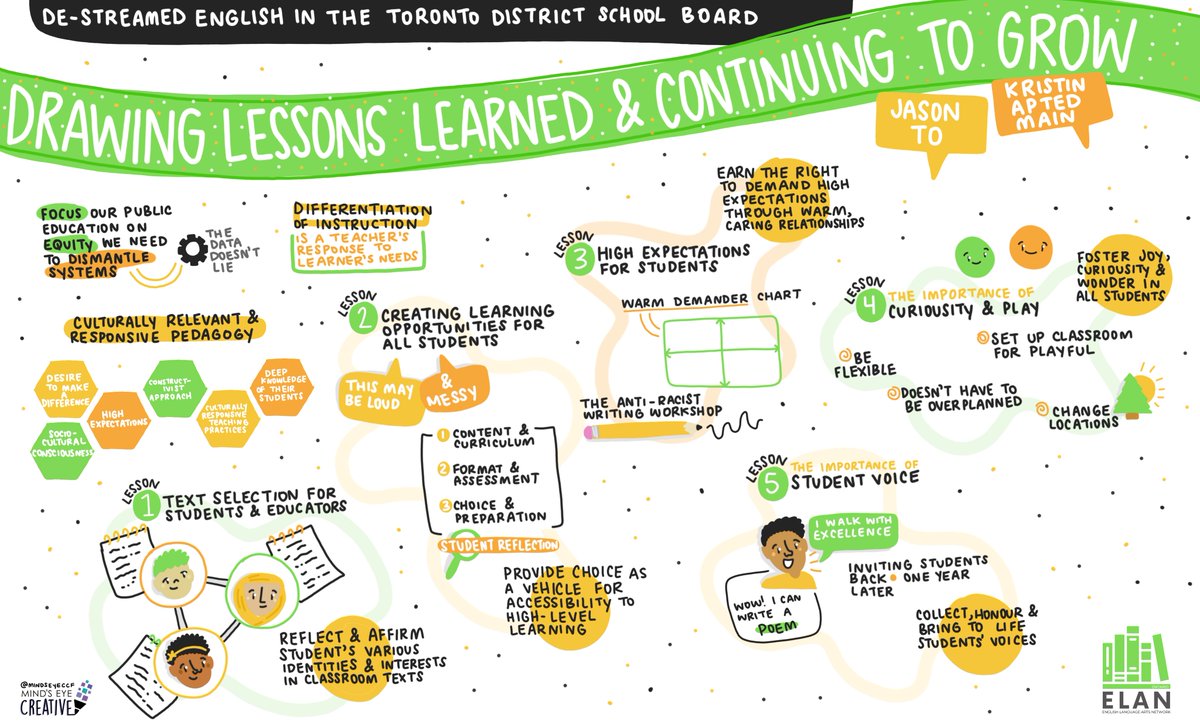 DE-STREAMED ENGLISH IN THE TORONTO DISTRICT SCHOOL BOARD
DRAWING LESSONS LEARNED & CONTINUING TO GROW
JASON
TO
KRISTIN
APTED
MAIN
FOCUS OUR PUBLIC
EDUCATION ON
EQUITY WE NEED
TO DISMANTLE
SYSTEMS
THE
DATA
DOESN'T
LIE
DIFFERENTIATION
OF INSTRUCTION
IS A TEACHER'S
RESPONSE TO
LEARNER'S NEEDS
CULTURALLY RELEVANT &
RESPONSIVE PEDAGOGY
DESIRE
TO MAKE
A
DIFFERENCE
HIGH
EXPECTATIONS
CONSTRUCT-
IVIST
APPROACH
CULTURALLY
RESPONSIVE
TEACHING
PRACTICES
DEEP
KNOWLEDGE
OF THEIR
STUDENTS
SOCIO-
CULTURAL
CONSCIOUSNESS
LESSON
1
TEXT SELECTION FOR
STUDENTS & EDUCATORS
REFLECT & AFFIRM
STUDENT'S VARIOUS
IDENTITIES & INTERESTS
IN CLASSROOM TEXTS
LESSON
2
CREATING LEARNING
OPPORTUNITIES FOR
ALL STUDENTS
THIS MAY
BE LOUD
&
MESSY
1 CONTENT &
CURRICULUM
2 FORMAT &
ASSESSMENT
3 CHOICE &
PREPARATION
STUDENT REFLECTION
PROVIDE CHOICE AS
A VEHICLE FOR
ACCESSIBILITY TO
HIGH-LEVEL
LEARNING
LESSON
3
HIGH EXPECTATIONS
FOR STUDENTS
EARN THE RIGHT
TO DEMAND HIGH
EXPECTATIONS
THROUGH WARM,
CARING RELATIONSHIPS
WARM DEMANDER CHART
THE ANTI-RACIST
WRITING WORKSHOP
LESSON
4
THE IMPORTANCE OF
CURIOUSITY & PLAY
FOSTER JOY,
CURIOUSITY &
WONDER IN
ALL STUDENTS
BE
FLEXIBLE
SET UP CLASSROOM
FOR PLAYFUL
DOESN'T HAVE TO
BE OVERPLANNED
CHANGE
LOCATIONS
LESSON
5
THE IMPORTANCE OF
STUDENT VOICE
I WALK WITH
EXCELLENCE
WOW! I CAN
WRITE A
POEM
INVITING STUDENTS
BACK • ONE YEAR
LATER
COLLECT, HONOUR &
BRING TO LIFE
STUDENTS' VOICES
@MINDSEYECCF
MIND'S EYE
CREATIVE
ELAN
ENGLISH LANGUAGE ARTS NETWORK